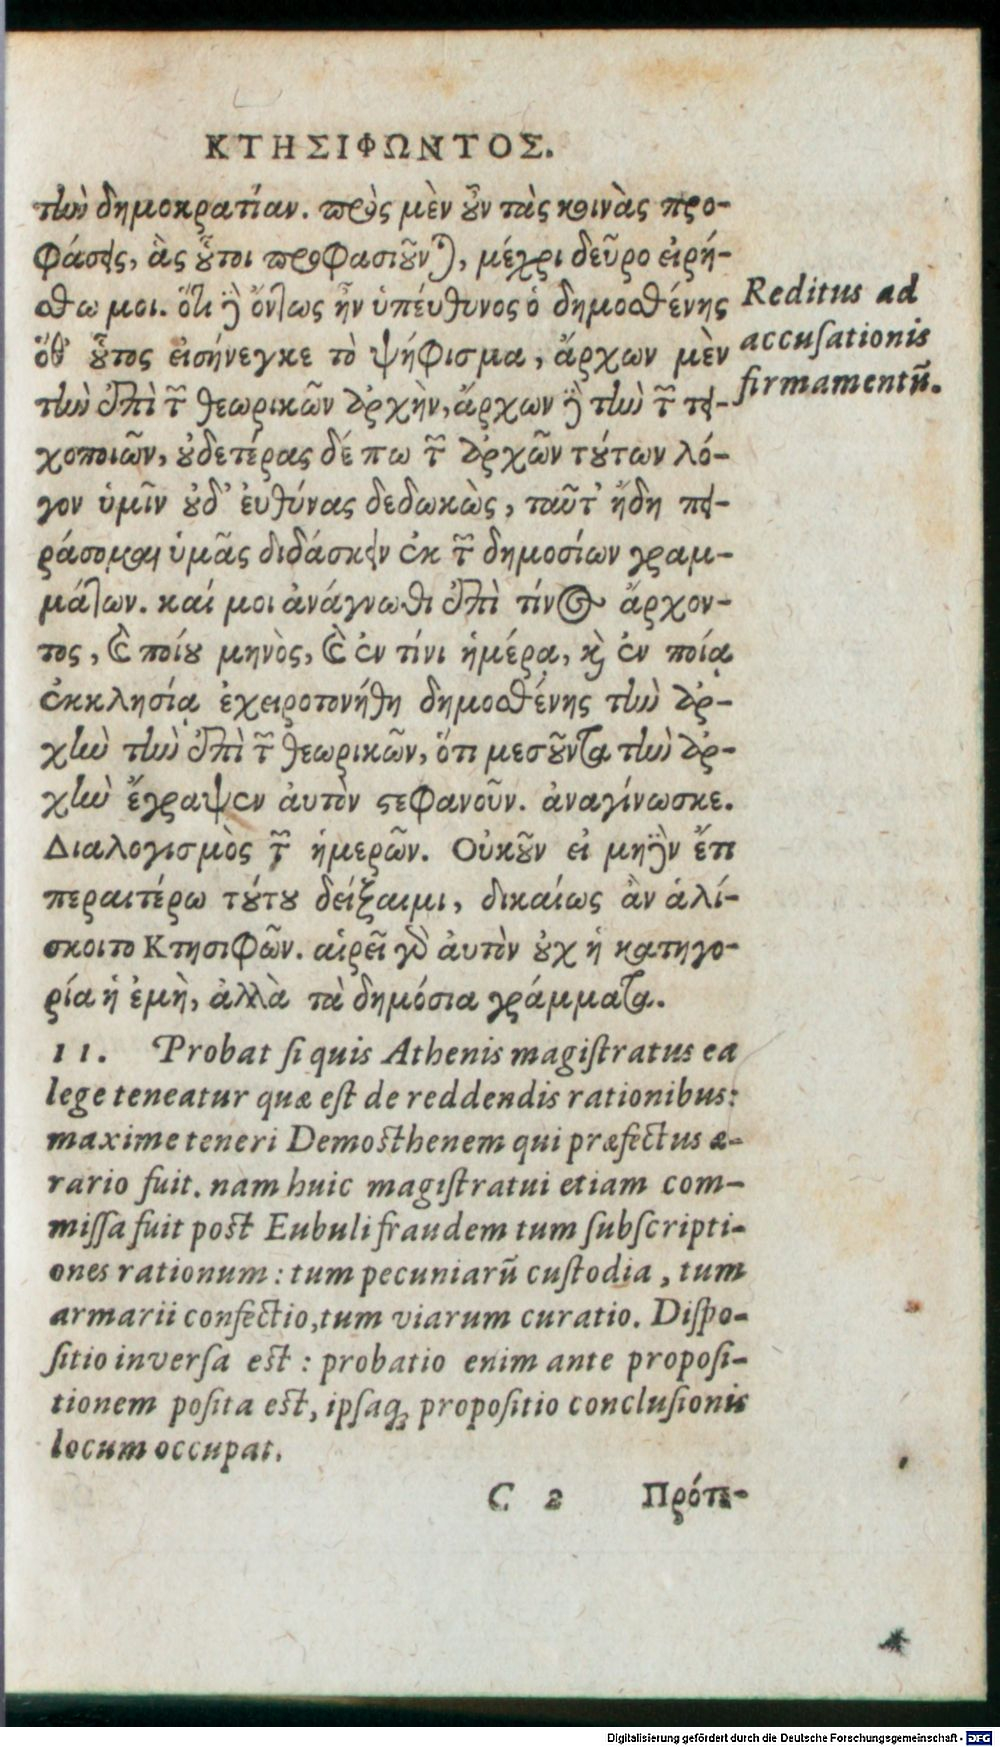 ΚΤΗΣΙΦΩΝΤΟΣ.
τὴν δημοκρατίαν. πρὸς μὲν οὖν τὰς κοινὰς προ-
φάσεις, ἃς οὗτοι προφασιοῦνται, μέχρι δεῦρο εἰρή-
σθω μοι. ὅτι δὲ ὄντως ἦν ὑπεύθυνος ὁ δημοσθένης
ὅθ' οὗτος εἰσήνεγκε τὸ ψήφισμα, ἄρχων μὲν
τὴν ἐπὶ τῶν θεωρικῶν ἀρχὴν, ἄρχων δὲ τὴν τῶν τει-
χοποιῶν, οὐδετέρας δέ πω τῶν ἀρχῶν τούτων λό-
γον ὑμῖν οὐδ' εὐθύνας δεδωκὼς, ταῦτ' ἤδη πει-
ράσομαι ὑμᾶς διδάσκειν ἐκ τῶν δημοσίων γραμ-
μάτων. καί μοι ἀνάγνωθι ἐπὶ τίνος ἄρχον-
τος, καὶ ποίου μηνὸς, καὶ ἐν τίνι ἡμέρᾳ, καὶ ἐν ποίᾳ
ἐκκλησίᾳ ἐχειροτονήθη δημοσθένης τὴν ἀρ-
χὴν τὴν ἐπὶ τῶν θεωρικῶν, ὅτι μεσοῦντα τὴν ἀρ-
χὴν ἔγραψεν αὐτὸν στεφανοῦν. ἀναγίνωσκε.
Διαλογισμὸς τῶν ἡμερῶν. Οὐκοῦν εἰ μηδὲν ἔτι
περαιτέρω τούτου δείξαιμι, δικαίως ἂν ἁλί-
σκοιτο Κτησιφῶν. αἱρεῖ γὰρ αὐτὸν οὐχ ἡ κατηγο-
ρία ἡ ἐμὴ, ἀλλὰ τὰ δημόσια γράμματα.
Reditus ad
accuſationis
firmamentũ.
11. Probat ſi quis Athenis magiſtratus ea
lege teneatur quæ eſt de reddendis rationibus:
maxime teneri Demoſthenem qui præfectus æ-
rario fuit. nam huic magiſtratui etiam com-
miſſa fuit poſt Eubuli fraudem tum ſubſcripti-
ones rationum: tum pecuniarũ cuſtodia, tum
armarii confectio, tum viarum curatio. Diſpo-
ſitio inverſa eſt: probatio enim ante propoſi-
tionem poſita eſt, ipſaq; propoſitio concluſionis
locum occupat.
C 2 Πρότε-
Digitalisierung gefördert durch die Deutsche Forschungsgemeinschaft - DFG